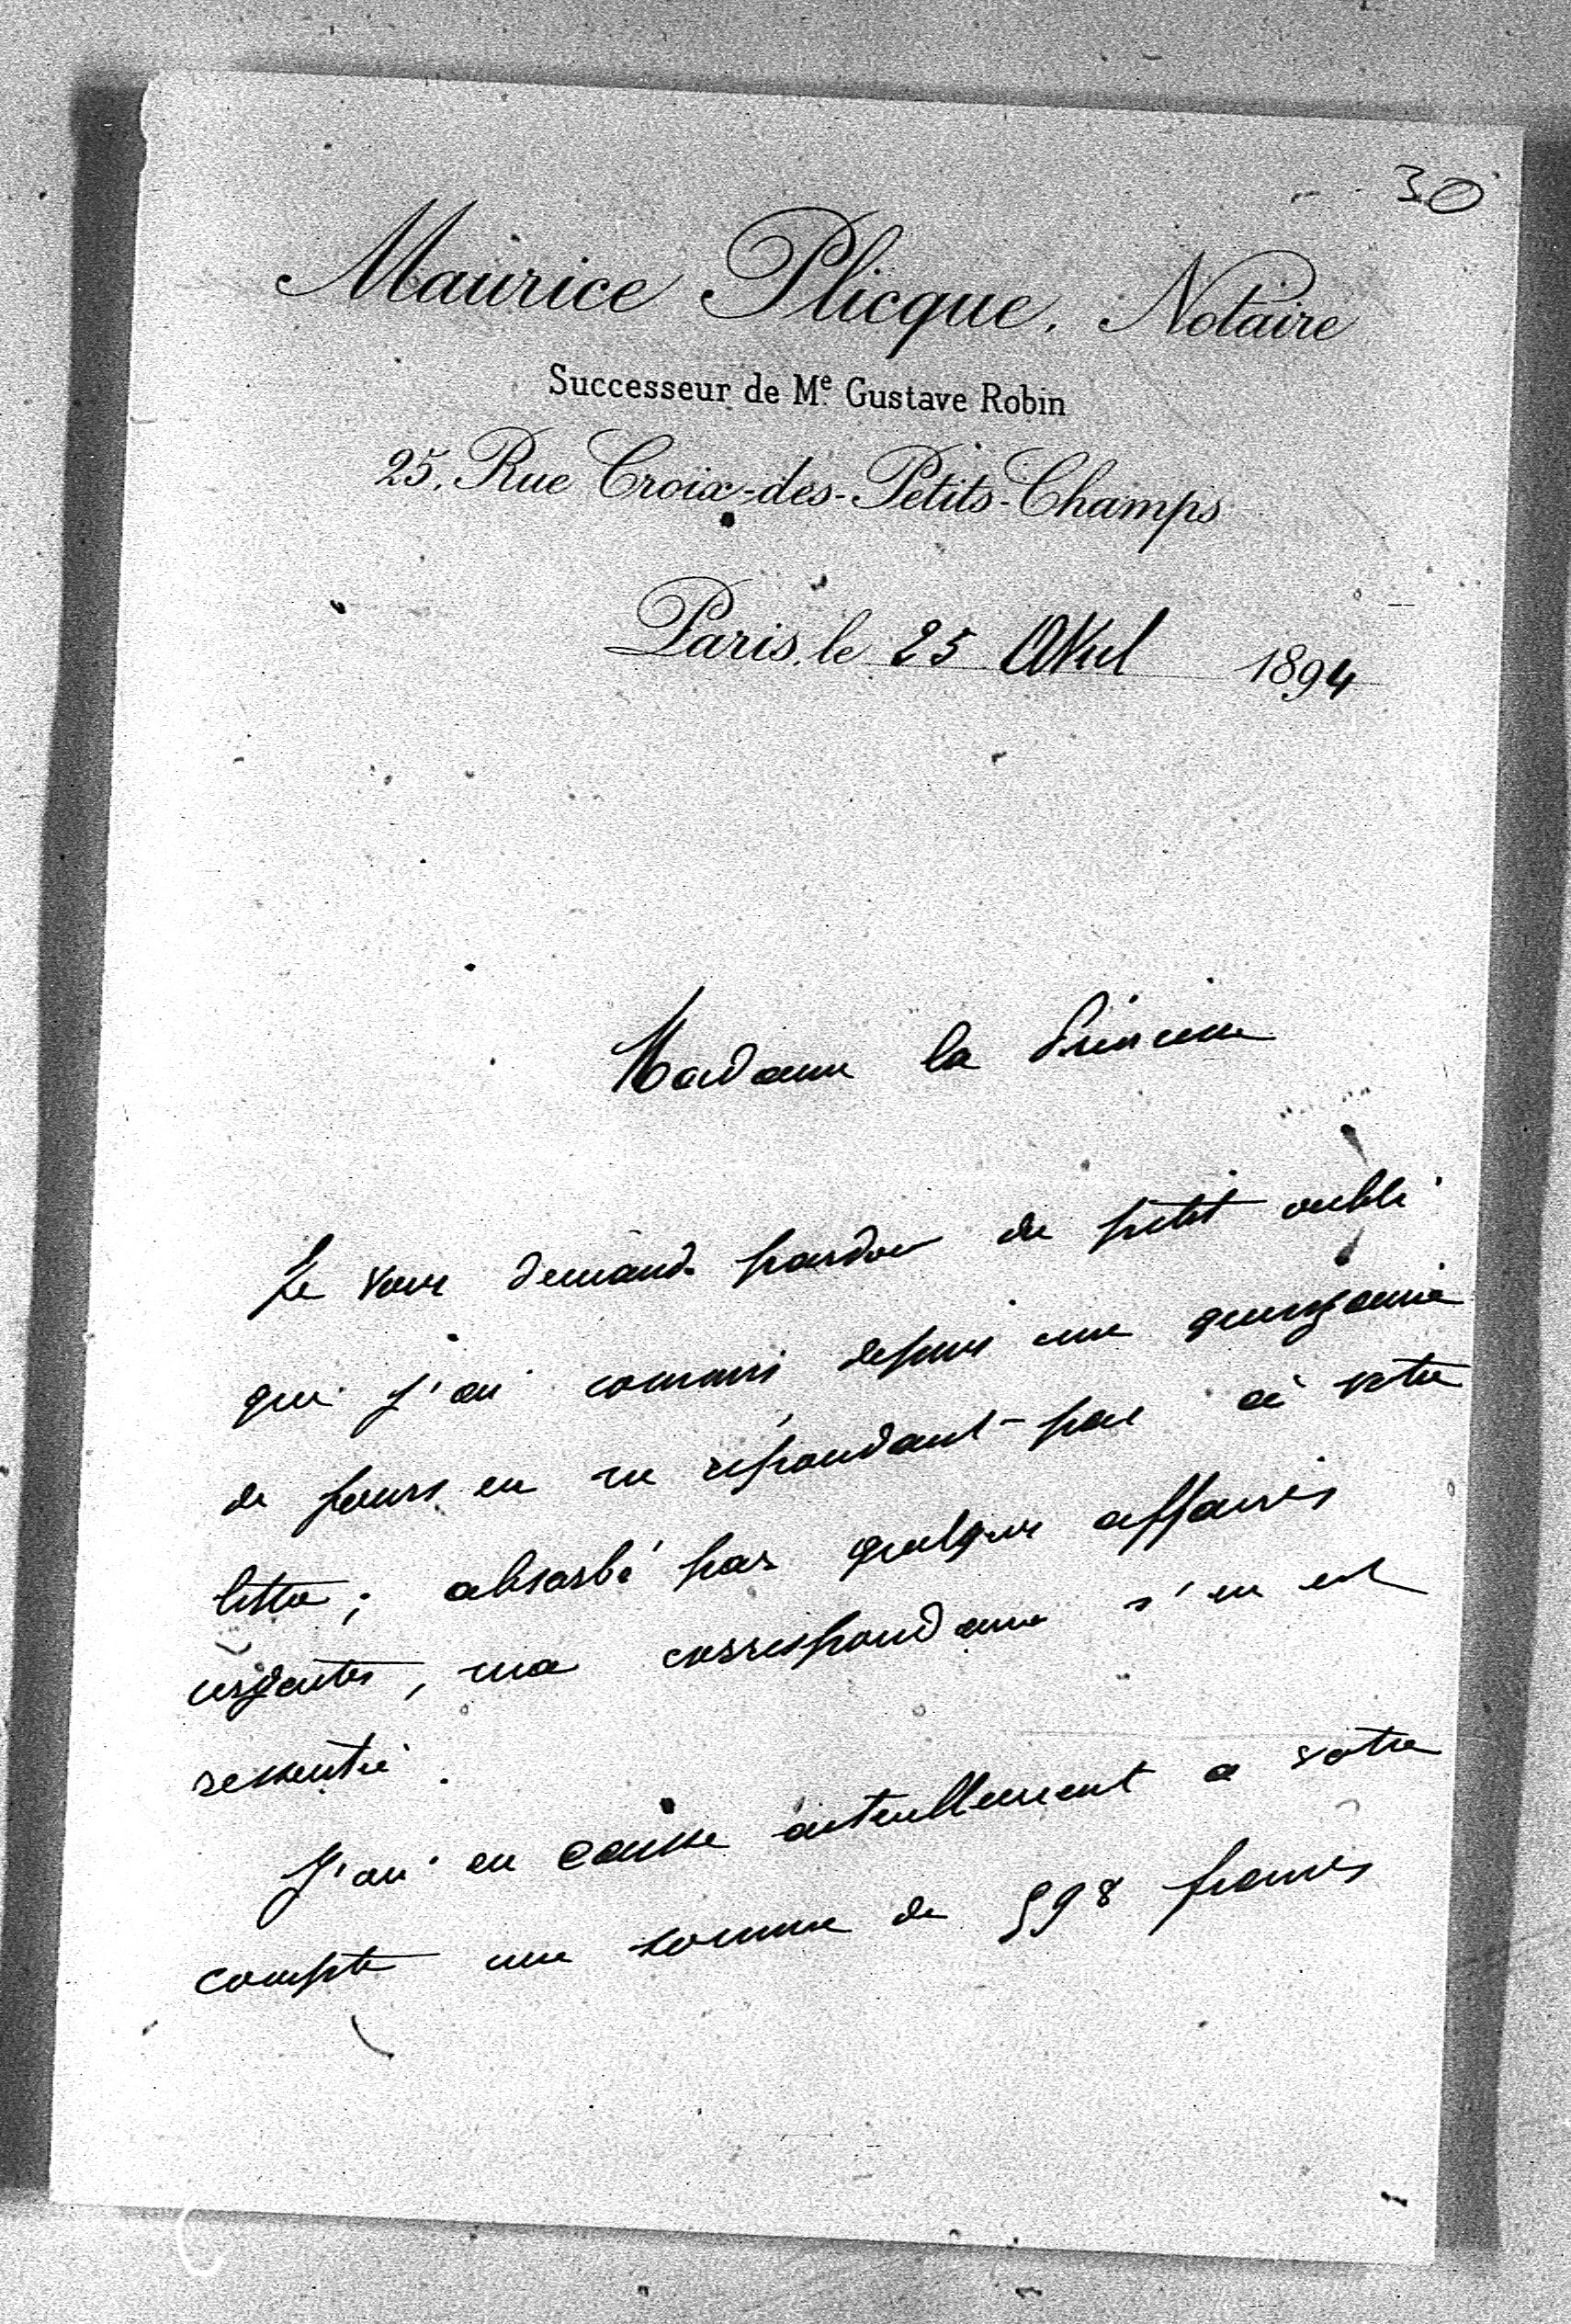 30
Maurice Plicque, Notaire
Successeur de Me Gustave Robin
25, Rue Croix-des-Petits-Champs
Paris, le 25 Avril 1894
Madame la Princesse
Je vous demande pardon du petit oubli
que j'ai commis depuis une quinzaine
de jours en ne répondant pas à votre
lettre ; absorbé par quelques affaires
urgentes, ma correspondance s'en est
ressentie.
J'ai en caisse actuellement a votre
compte une somme de 598 francs